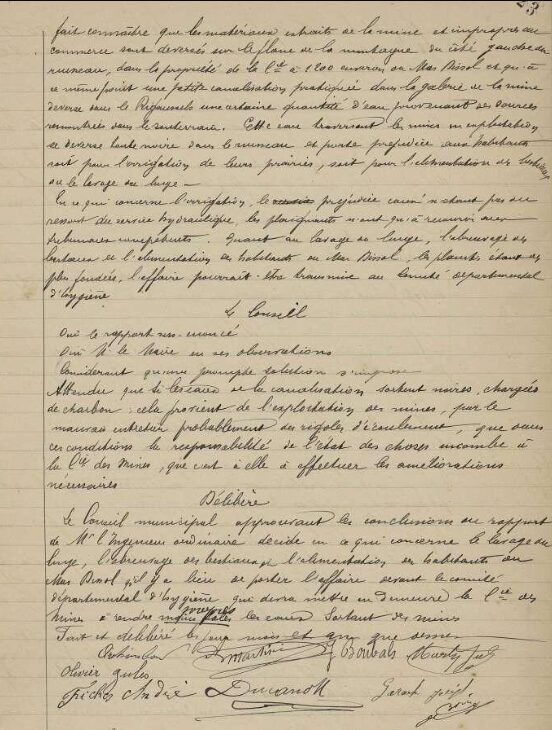 fait connaître que les matériaux extraits de la mine et impropres au
commerce sont déversés sur le flanc de la montagne du côté gauche du
ruisseau, dans la propriété de la Cie à 1200 environ du Mas Bissol et qu'à
ce même point une petite canalisation pratiquée dans la galerie de la mine
déverse dans le une certaine quantité d'eau provenant des sources
rencontrées dans le souterrain. Cette eau traversant les mines en exploitation
se déverse toute noire dans le ruisseau et porte préjudice aux habitants
soit pour l'irrigation de leurs prairies, soit pour l'alimentation des bestiaux
ou le lavage du linge —
En ce qui concerne l'irrigation, le préjudice causé n'étant pas du
ressort du service hydraulique, les plaignants n'ont qu'à recourir aux
tribunaux compétents. Quant au lavage du linge, l'abreuvage des
bestiaux et l'alimentation des habitants du Mas Bissol, les plaintes étant des
plus fondées, l'affaire pourrait être transmise au Comité départemental
d'hygiène
Le Conseil
Oui le rapport sus-énoncé
Oui M. le Maire en ses observations
Considérant qu'une prompte solution s'impose
Attendu que si les eaux de la canalisation sortent noires, chargées
de charbon : cela provient de l'exploitation des mines, par le
mauvais entretien probablement des rigoles d'écoulement, que dans
ces conditions la responsabilité de l'état des choses incombe à
la Cie des Mines, que c'est à elle à effectuer les améliorations
nécessaires
Délibère
Le Conseil municipal approuvant les conclusions du rapport
de Mr l'Ingénieur ordinaire décide en ce qui concerne le lavage du
linge, l'abreuvage des bestiaux et l'alimentation des habitants du
Mas Bissol qu'il y a lieu de porter l'affaire devant le comité
départemental d'hygiène qui devra mettre en demeure la Cie des
Mines à rendre potables les eaux sortant des mines
Fait et délibéré les jour mois et an que dessus
Martin Boubals
Olivier Jules
André Ducanoll